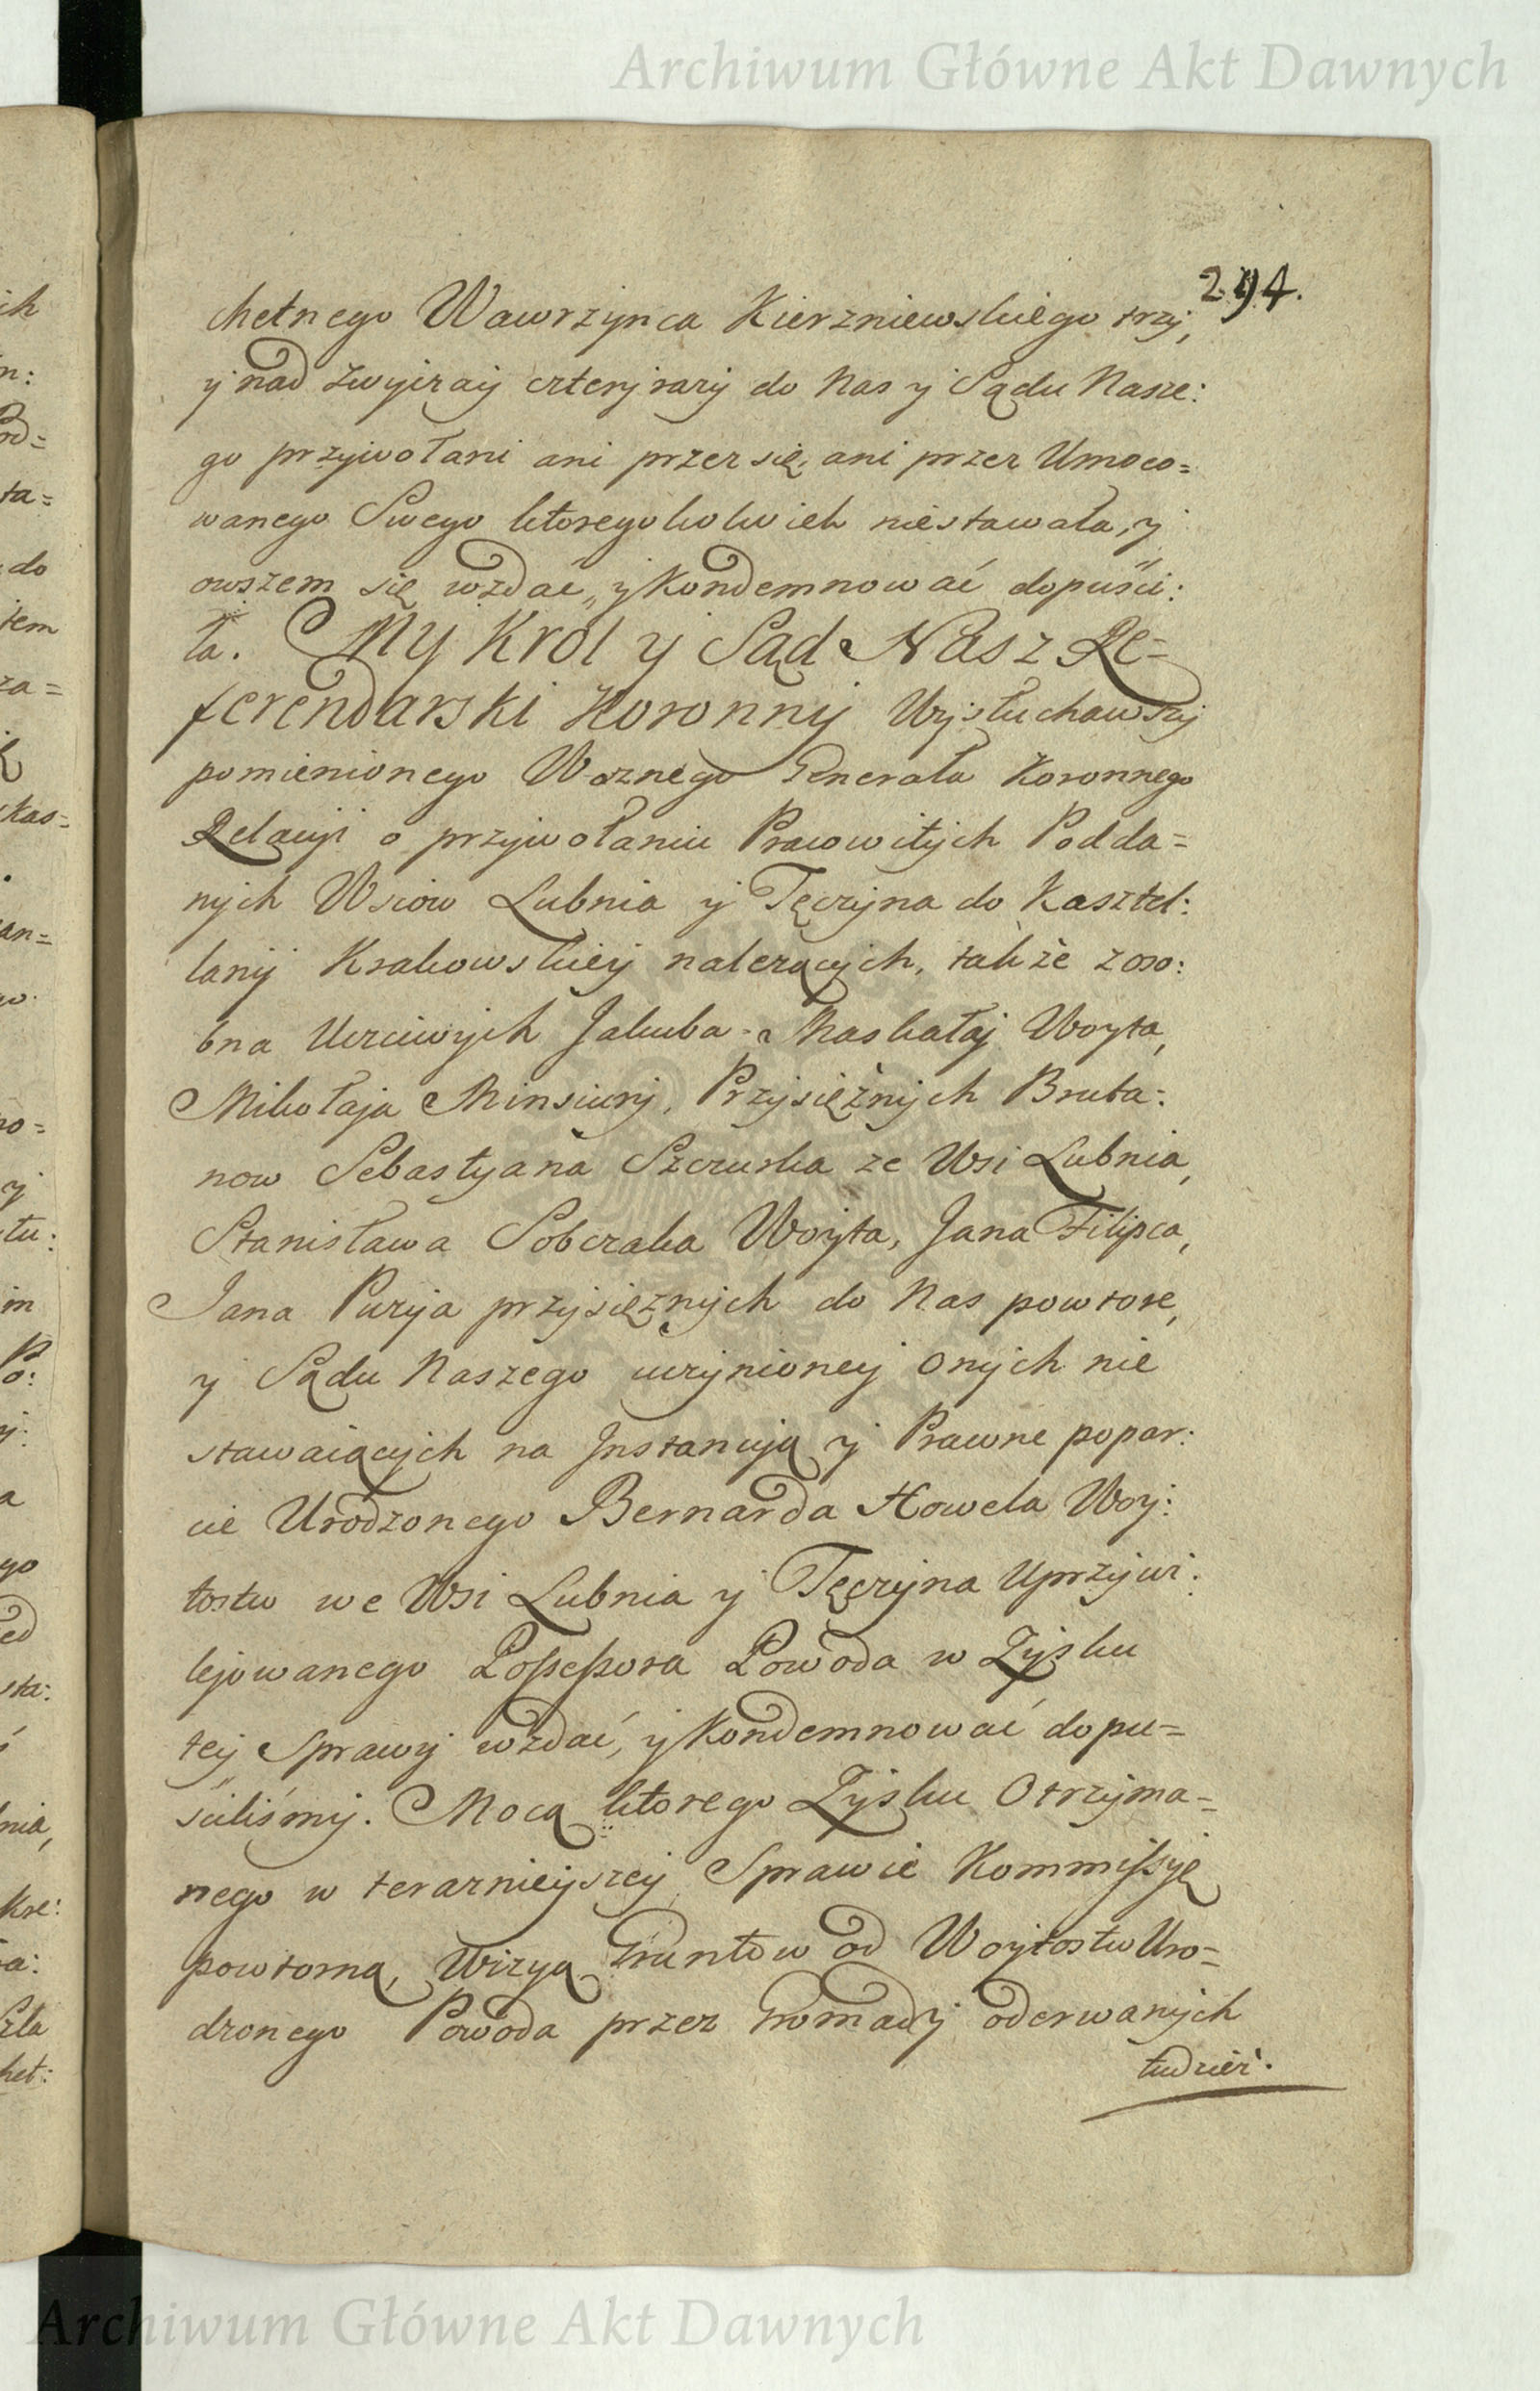 Archiwum Główne Akt Dawnych
294.
chetnego Wawrzynca Kierzniewskiego trzy,
y nad zwyczay cztery razy do Nas y Sądu Nasze:
go przywołani ani przez się, ani przez Umoco=
wanego Swego ktoregokolwiek niestawała, y
owszem się wzdać, y Kondemnować dopuści:
ła. My Krol y Sąd Nasz Re=
ferendarski Koronny Wysłuchawszy
pomienionego Woznego Generała Koronnego
Relacyi o przywołaniu Pracowitych Podda=
nych Wsiow Lubnia y Tęczyna do Kasztel:
lanij Krakowskiey należących, także zoso:
bna Uczciwych Jakuba Maskałaj Woyta,
Mikołaja Minsiury, Przysiężnych Bruta:
now Sebastyana Szczurka ze Wsi Lubnia,
Stanisława Sobczaka Woyta, Jana Filipca,
Jana Puzyja przysięznych do Nas powtore,
y Sądu Naszego uczynioney Onych nie
stawaiących na Instancyą y Prawne popar:
cie Urodzonego Bernarda Howela Woy:
tostw we Wsi Lubnia y Tęczyna Uprzywi:
lejowanego Possessora Powoda w Zysku
tey Sprawy wzdać, y Kondemnować dopu=
ściliśmy. Mocą ktorego Zysku Otrzyma=
nego w teraznieyszey Sprawie Kommissyę
powtorną, Wizyą Gruntow od Woytostw Uro=
dzonego Powoda przez Gromady oderwanych
tudzież.
Archiwum Główne Akt Dawnych